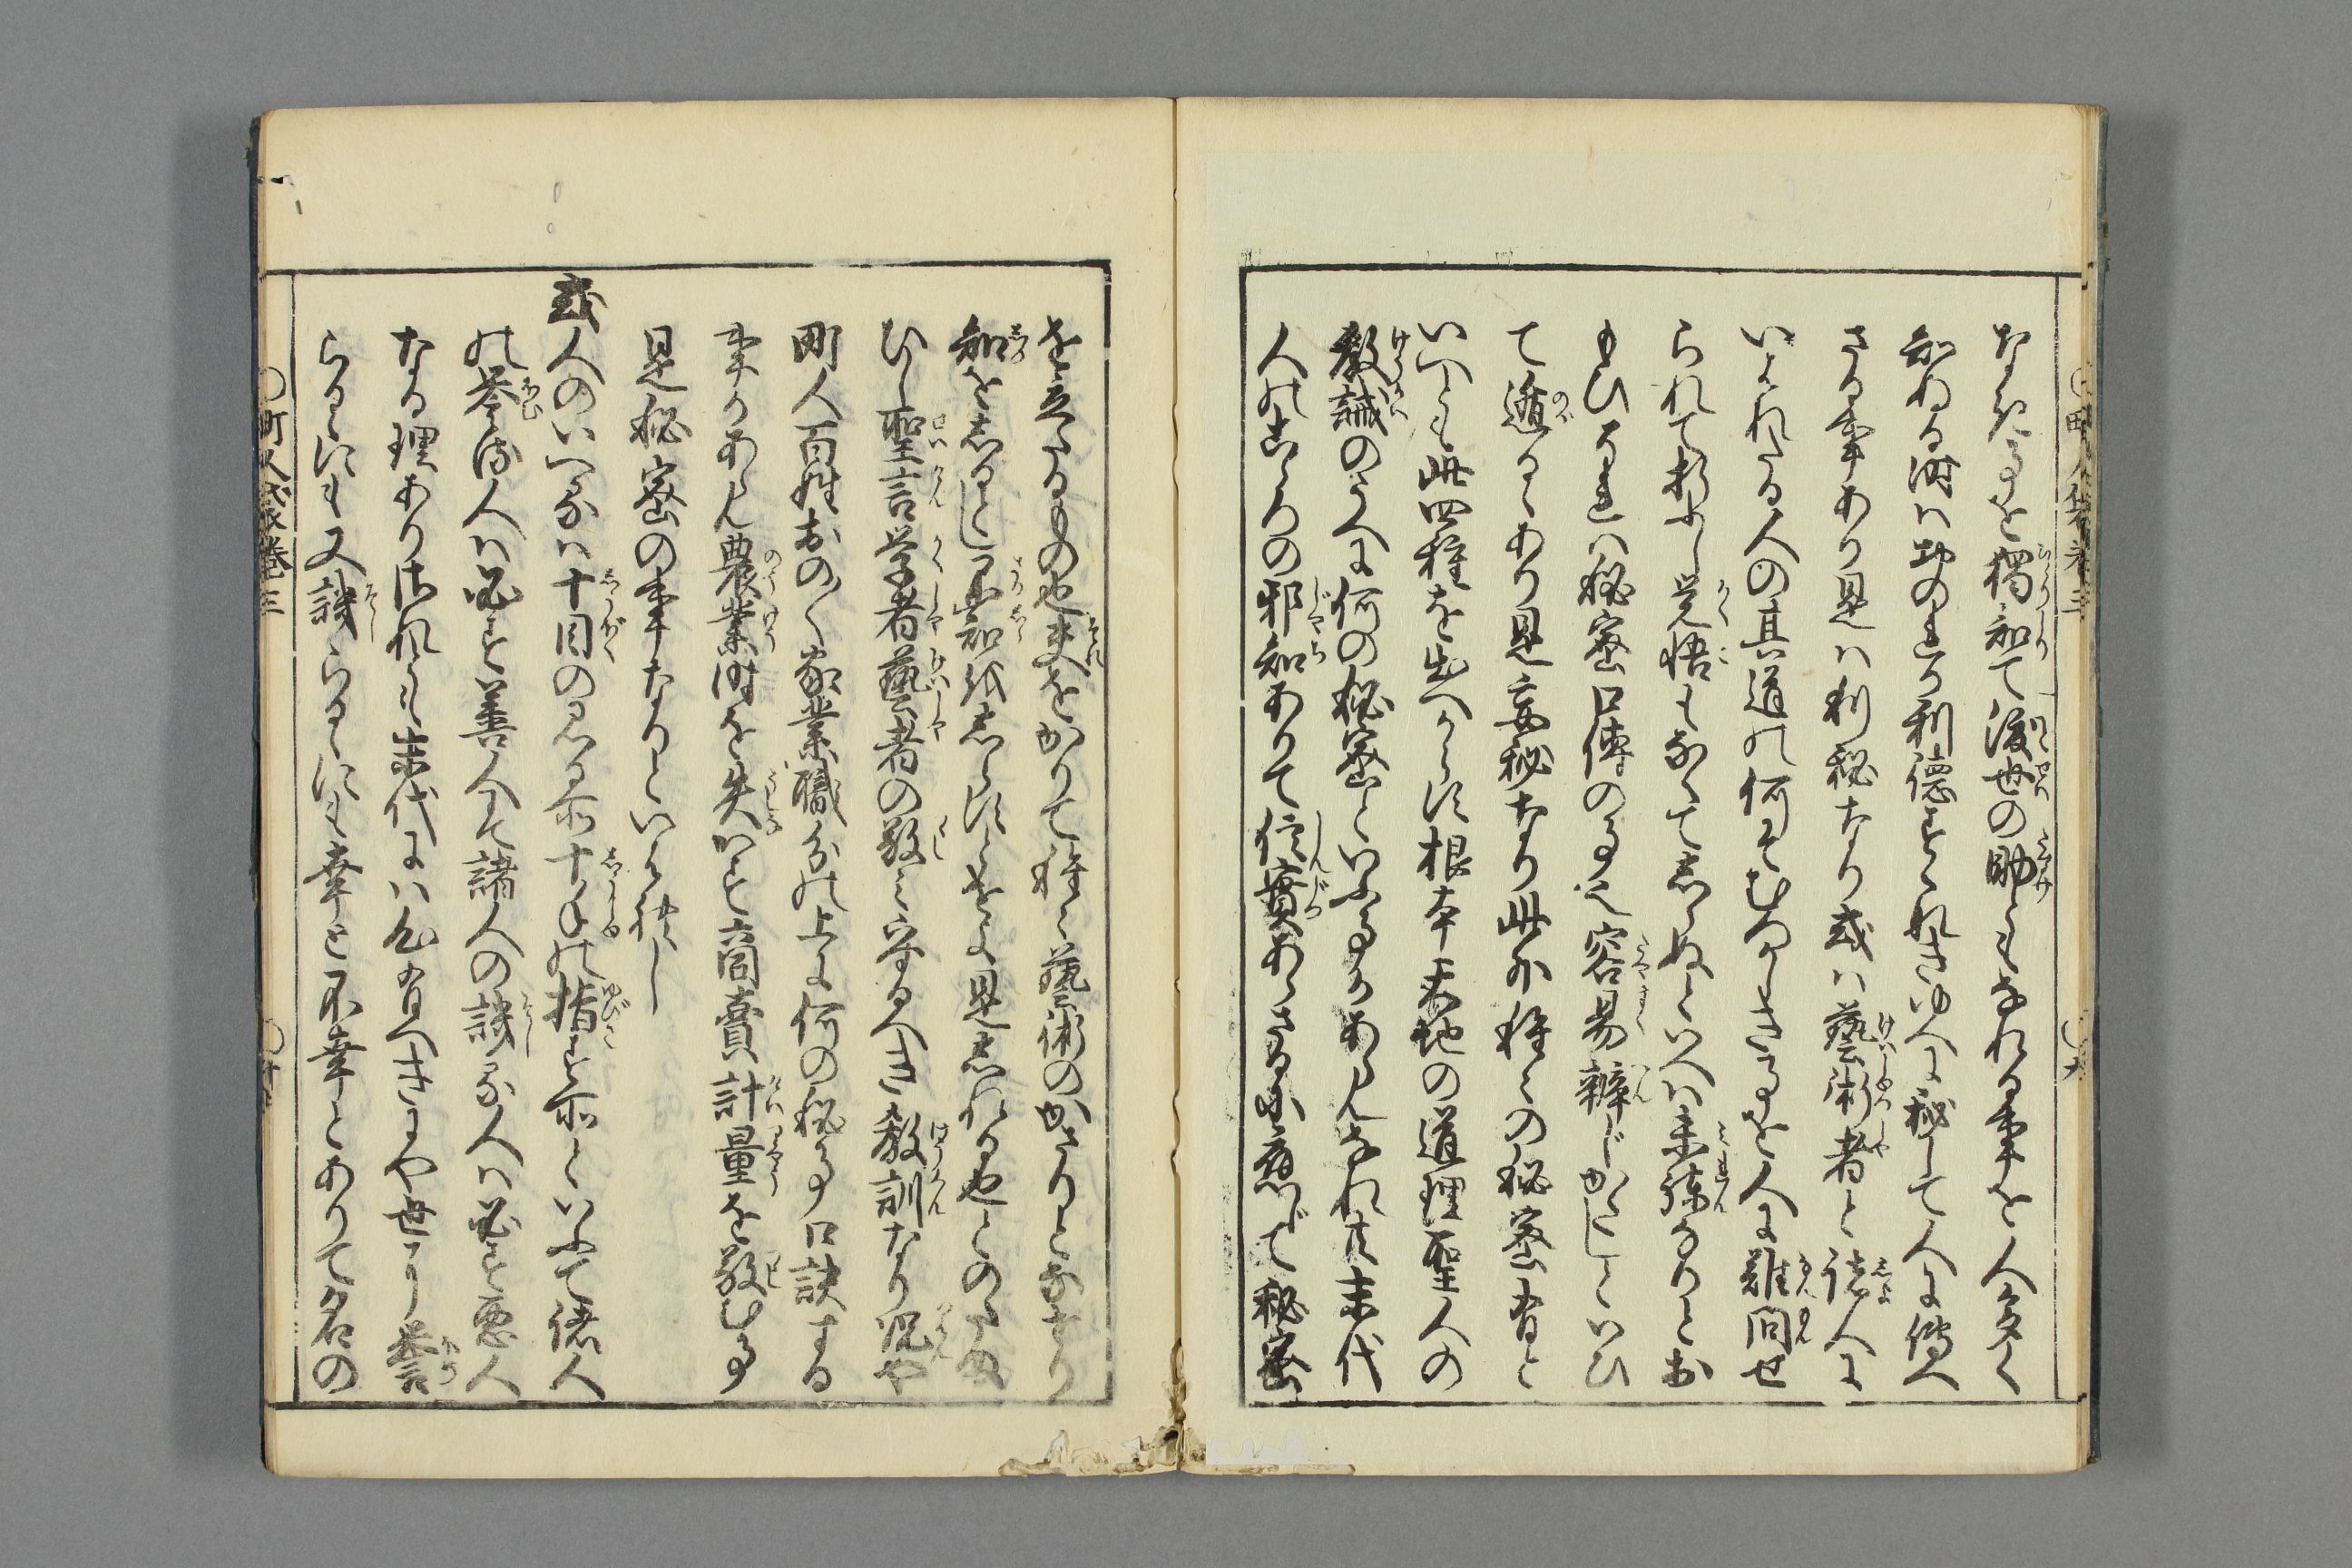 なき事を獨知て後世の助ともなれる事を人多く
知ぬる時は功のミか利徳すくなきゆへに秘して人に傳へ
さる事あり是は利秘なり或は藝術者と諸人に
いはれたる人の其道の何そむつかしき事を人に難問せ
られて折ふし覚悟もなくてしらぬといへは未練なりとお
もひそれは秘密口傳の事也容易辨じがたしといひ
て遁るゝあり是妄秘なり此外種々の秘密有と
いへとも此四種を出へからす根本天地の道理聖人の
教誡のうへに何の秘密といふ事かあらんなれ共末代
人のこゝろの邪知ありて信實あらさる故に應じて秘密
を立たるもの也夫をかりて種々藝術のかさりとなせり
知をしるとし不知をしらすとせよ是しれる也とのたま
ひし聖言学者藝者の敬ミ守るへき教訓なり况や
町人百姓おの〱家業職分の上に何の秘事口訣する
事かあらん農業時を失はす商賣計量を敬む事
是秘密の事なりといへり
或人のいへるは十目の見る所十手の指す所といふて諸人
の誉る人は必す善人にて諸人の譏る人は必す悪人
なる理ありされとも末代には心有へきにや世に誉
らるゝにも又譏らるゝにも幸と不幸とありて名の
町人袋巻三
町人袋巻三